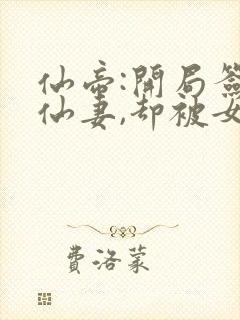 仙帝:開局簽
仙妻,却被女
費洛蒙